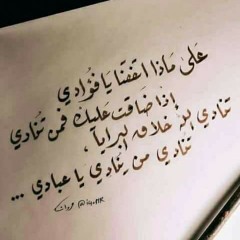 عَلى مَاذا اتفقنا يَا فُؤادي
إذَا ضَاقت عَليك فمن تنادي
تنادي الله خلاق البرايا ،
تنادي من ينادي يا عبادي ...